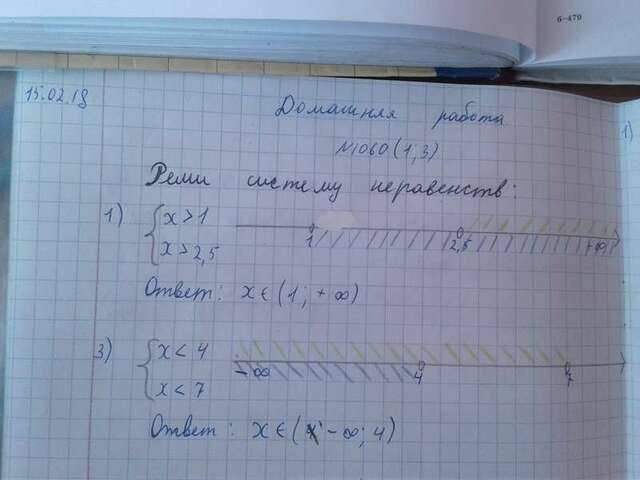 15.02.18
Домашняя работа
№1060 (1; 3)
Реши систему неравенств:
1) { x > 1
x > 2,5
1 2,5 +∞
Ответ: x ∈ (1; +∞)
3) { x < 4
x < 7
-∞ 4 7
Ответ: x ∈ (-∞; 4)
1)
6-479